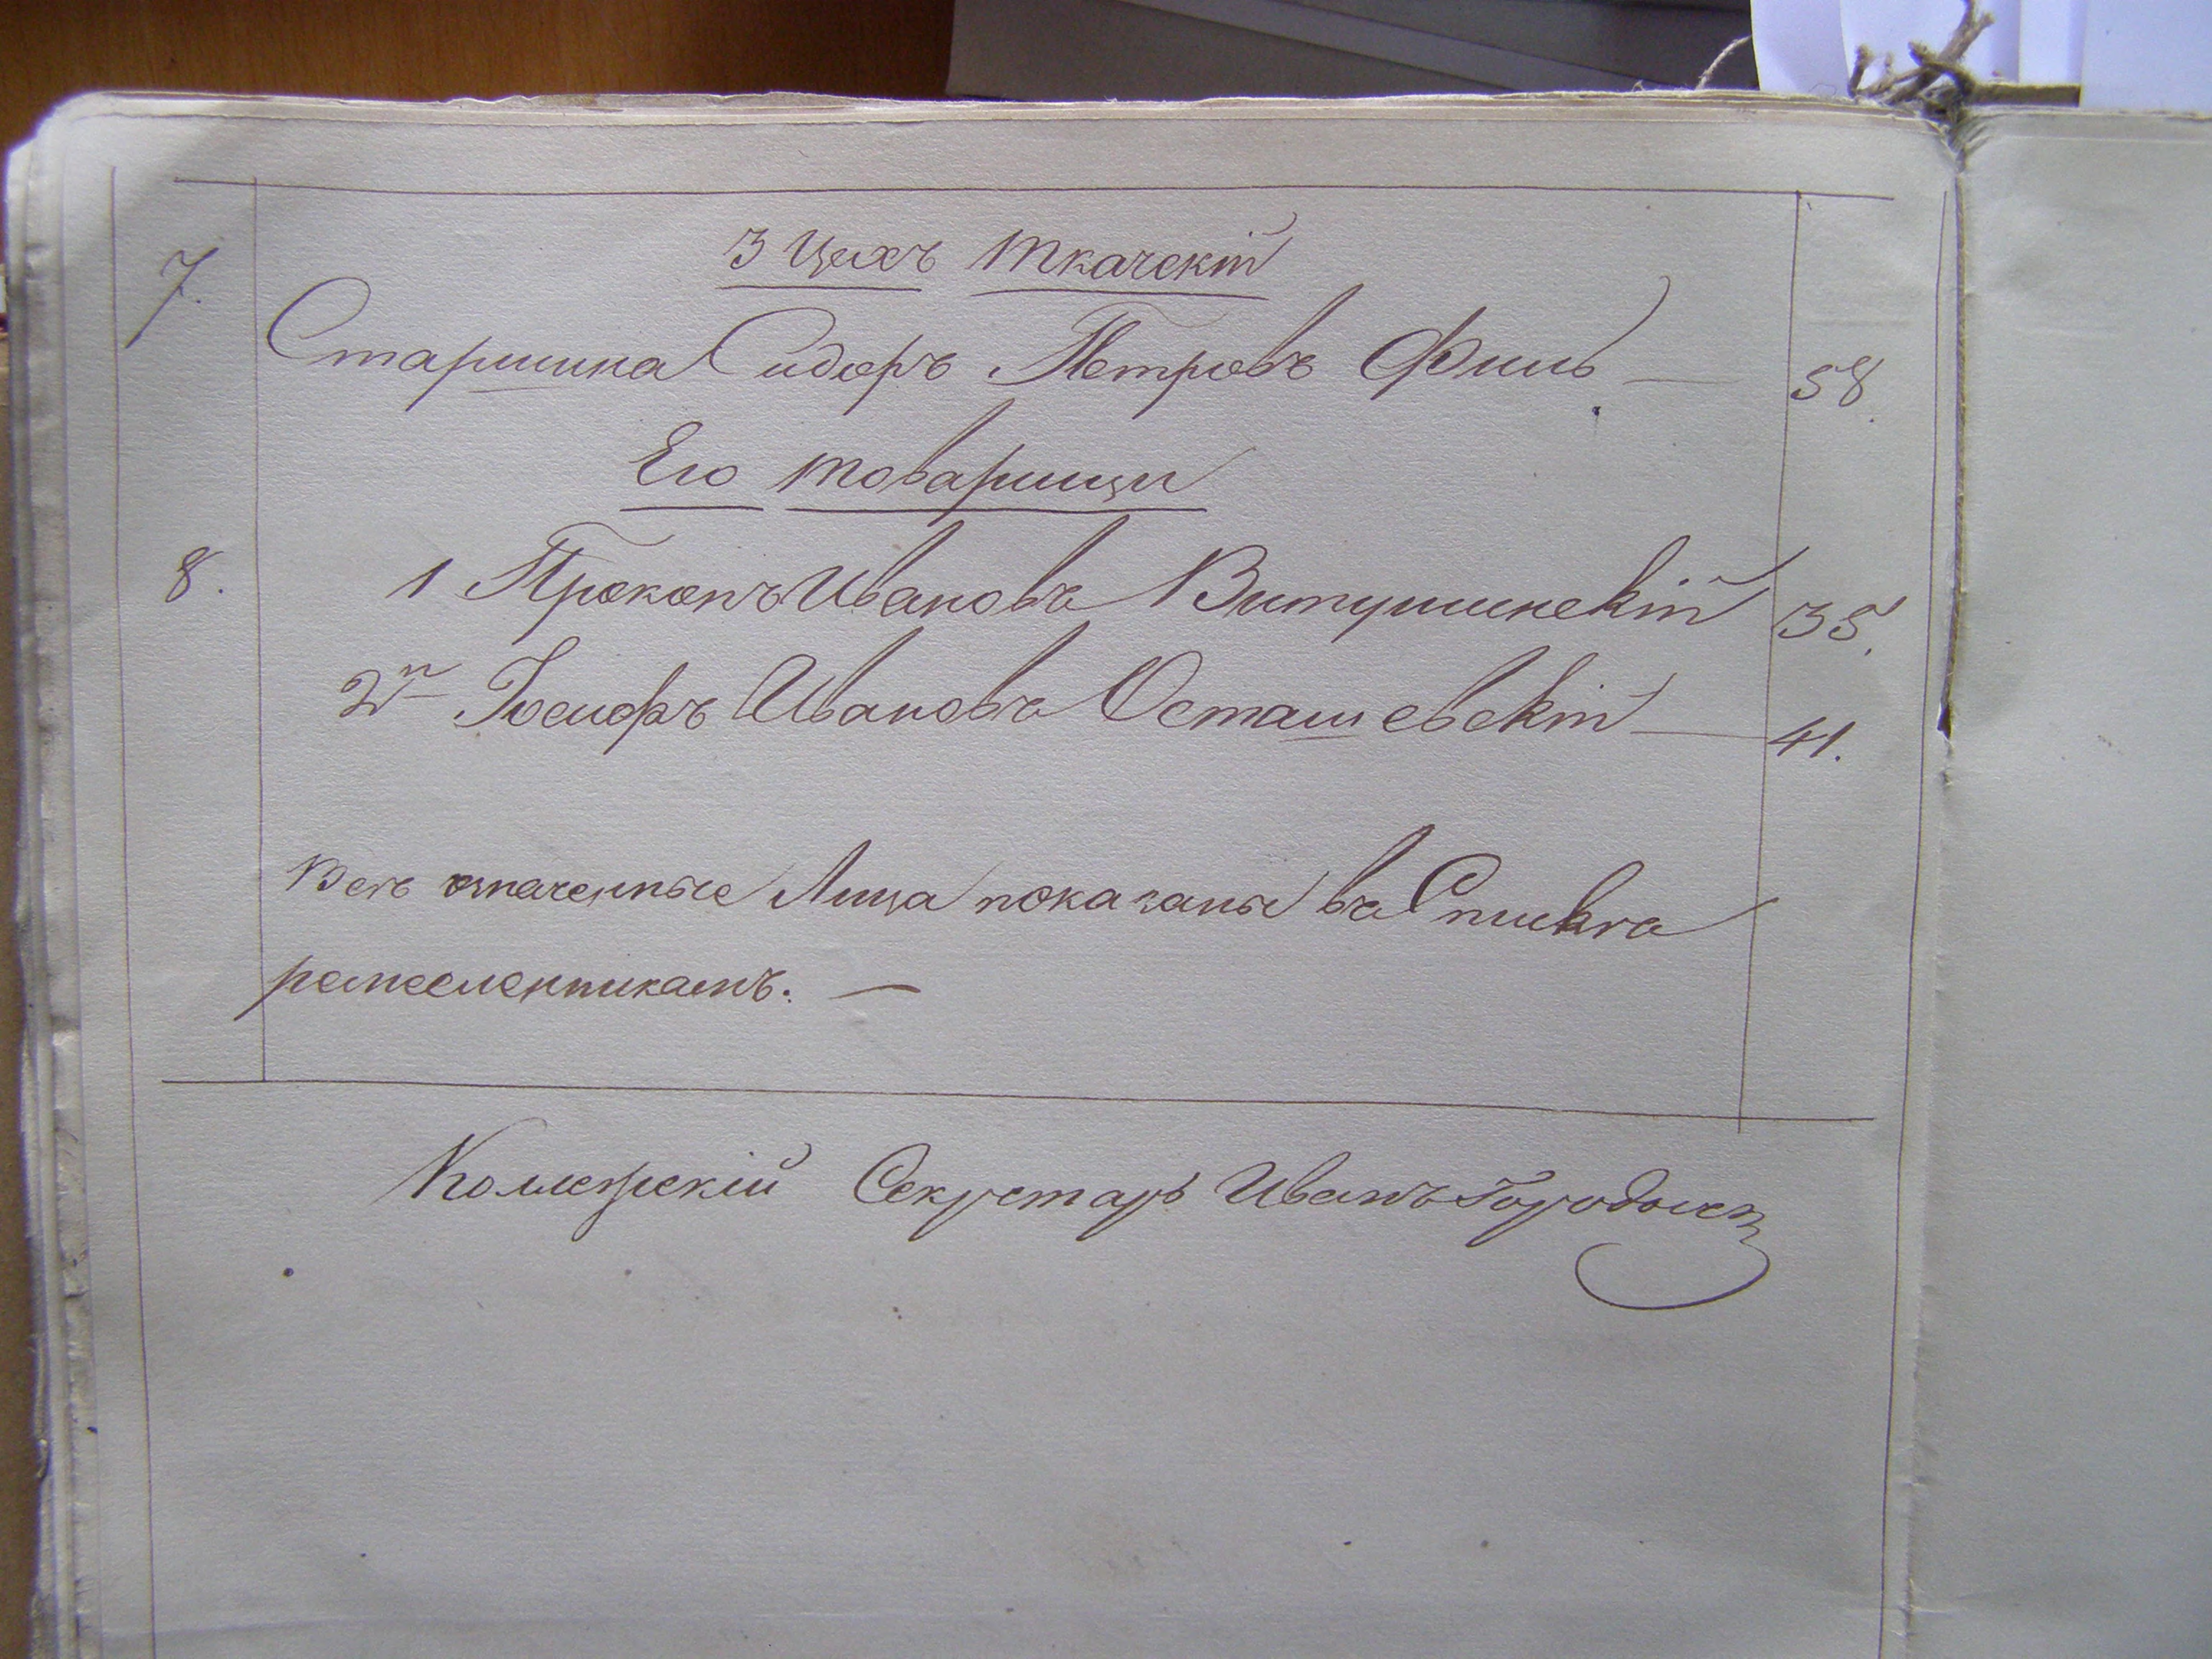 3 Цехъ Ткачскій
7. Старшина Сидоръ Петровъ Финь — 58.
Его товарищи
8. 1 Прокопъ Ивановъ Витушинскій 35.
2й Іосифъ Ивановъ Осташевскій — 41.
Всѣ означенные Лица показаны въ Спискѣ
ремесленникамъ. —
Секретарь Иванъ